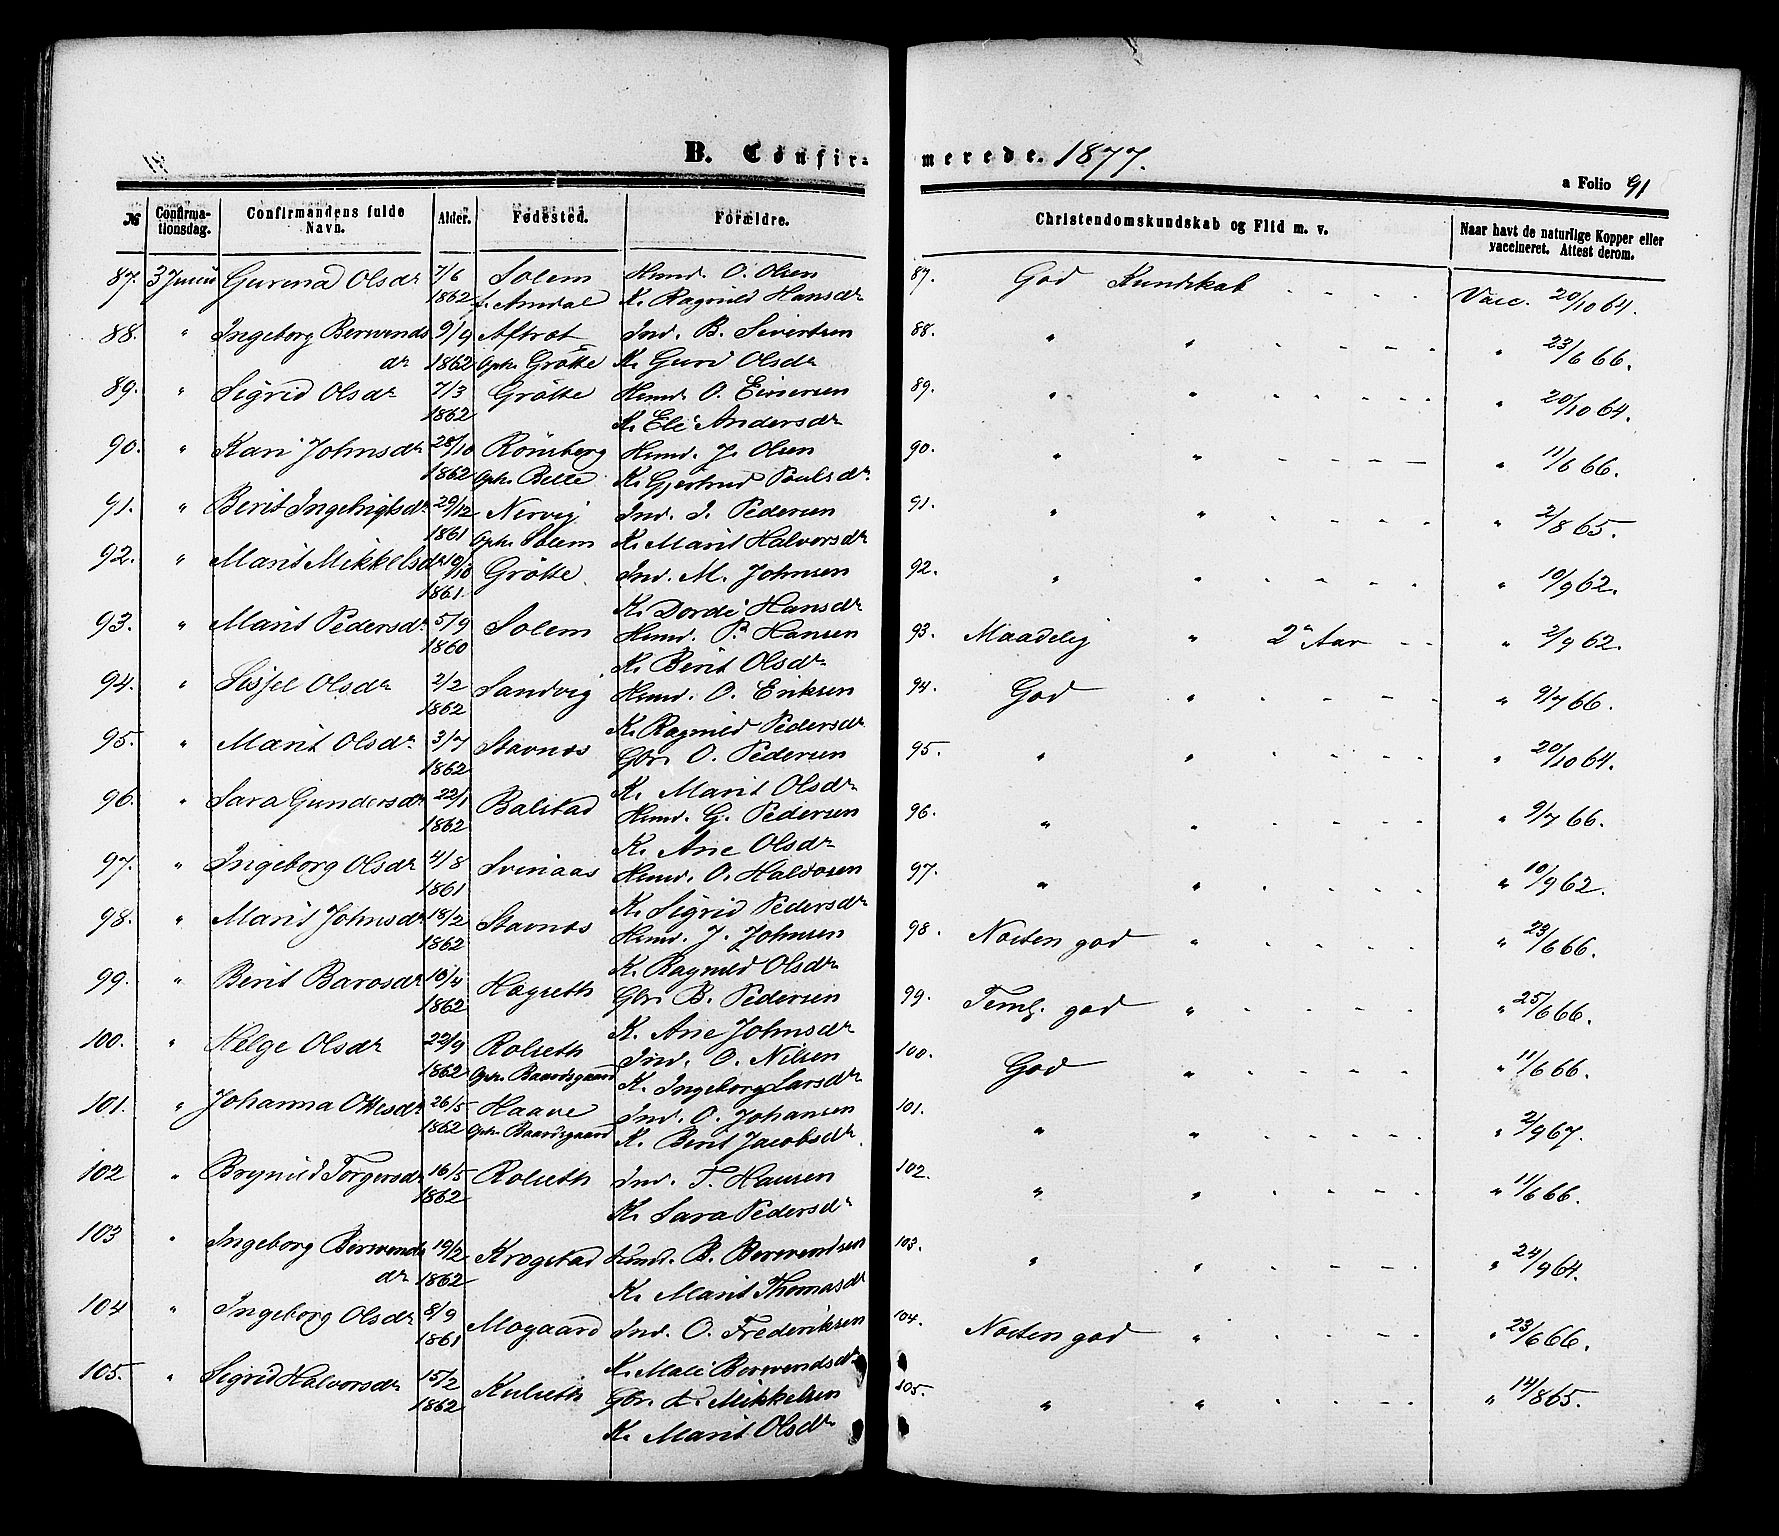 B. Confir-merede. 1877.
a Folio 91
№ Confirma-tionsdag. Confirmandens fulde Navn. Alder. Fødested. Forældre. Christendomskundskab og Flid m. v. Naar havt de naturlige Kopper eller vaccineret. Attest derom.
87. 3 Junii Gurina Olsdr 7/6 Solem Huusmd. O. Olsen 87. God Kundskab - - - - Vacc. 20/10 64.
1862 K. Ragnild Hansdr
88. " Ingeborg Berwends 9/9 Aftrøt Ind. B. Sivertsen 88. " " - - - - " 23/6 66.
dr 1862 Oph. Grötte K. Guri Olsdr
89. " Sigrid Olsdr 7/3 Grötte Huusmd. O. Einersen 89. " " - - - - " 20/10 64.
1862 K. Eli Andersdr
90. " Kari Johnsdr 28/10 Rönsberg Huusmd. J. Olsen 90. " " - - - - " 11/6 66.
1862 Oph. Belle K. Gjertrud Poulsdr
91. " Berit Ingebrigtsdr 29/12 Nervig Ind. I. Pedersen 91. " " - - - - " 2/8 65.
1861 Oph. Solem K. Marit Halvorsdr
92. " Marit Mikkelsdr 10/10 Grötte Ind. M. Johnsen 92. " " - - - - " 10/9 62.
1861. K. Dordi Hansdr
93. " Marit Pedersdr 5/9 Solem Huusmd. P. Hansen 93. Maadelig " 2 Aar - - " 2/9 62.
1860 K. Berit Olsdr
94. " Sissel Olsdr 2/2 Sandvig Huusmd. O. Eriksen 94. God " - - - - " 9/7 66.
1862 K. Ragnild Pedersdr
95. " Marit Olsdr 3/7 Stavnæs Gbr. O. Pedersen 95. " " - - - - " 20/10 64.
1862 K. Marit Olsdr
96. " Sara Gundersdr 22/1 Balstad Huusmd. G. Pedersen 96. " " - - - - " 9/7 66.
1862 K. Ane Olsdr
97. " Ingeborg Olsdr 4/8 Svinaas Huusmd. O. Halvosen 97. " " - - - - " 10/9 62.
1861 K. Sigrid Pedersdr
98. " Marit Johnsdr 18/2 Stavnæs Huusmd. J. Johnsen 98. Næsten god " - - - - " 23/6 66.
1862 K. Ragnild Olsdr
99. " Berit Barosdr 10/4 Hogseth Gbr. B. Pedersen 99. Teml. god " - - - - " 25/6 66.
1862 K. Ane Johnsdr
100. " Helge Olsdr 22/9 Rolseth Ind. O. Nilsen 100. God " - - - - " 11/6 66.
1862 Oph. Baardsgaard K. Ingeborg Larsdr
101. " Johanna Ottesdr 26/5 Haave Ind. O. Johansen 101. " " - - - - " 2/9 67.
1862 Oph. Baardsgaard K. Berit Jacobsdr
102 " Brynild Torgersdr 16/5 Rolseth Ind. T. Hansen 102. " " - - - - " 11/6 66.
1862 K. Sara Pedersdr
103 " Ingeborg Berwends 19/2 Krogstad Huusmd. B. Berwendsen 103. " " - - - - " 24/9 64.
dr 1862 K. Marit Thomasdr
104 " Ingeborg Olsdr 8/9 Mogaard Ind. O. Frederiksen 104. Næsten god " - - - - " 23/6 66.
1861 K. Mali Berwendsdr
105. " Sigrid Halvorsdr 15/2 Kulseth Gbr. Mikkelsen 105. " " - - - - " 14/8 65.
1862 K. Marit Olsdr